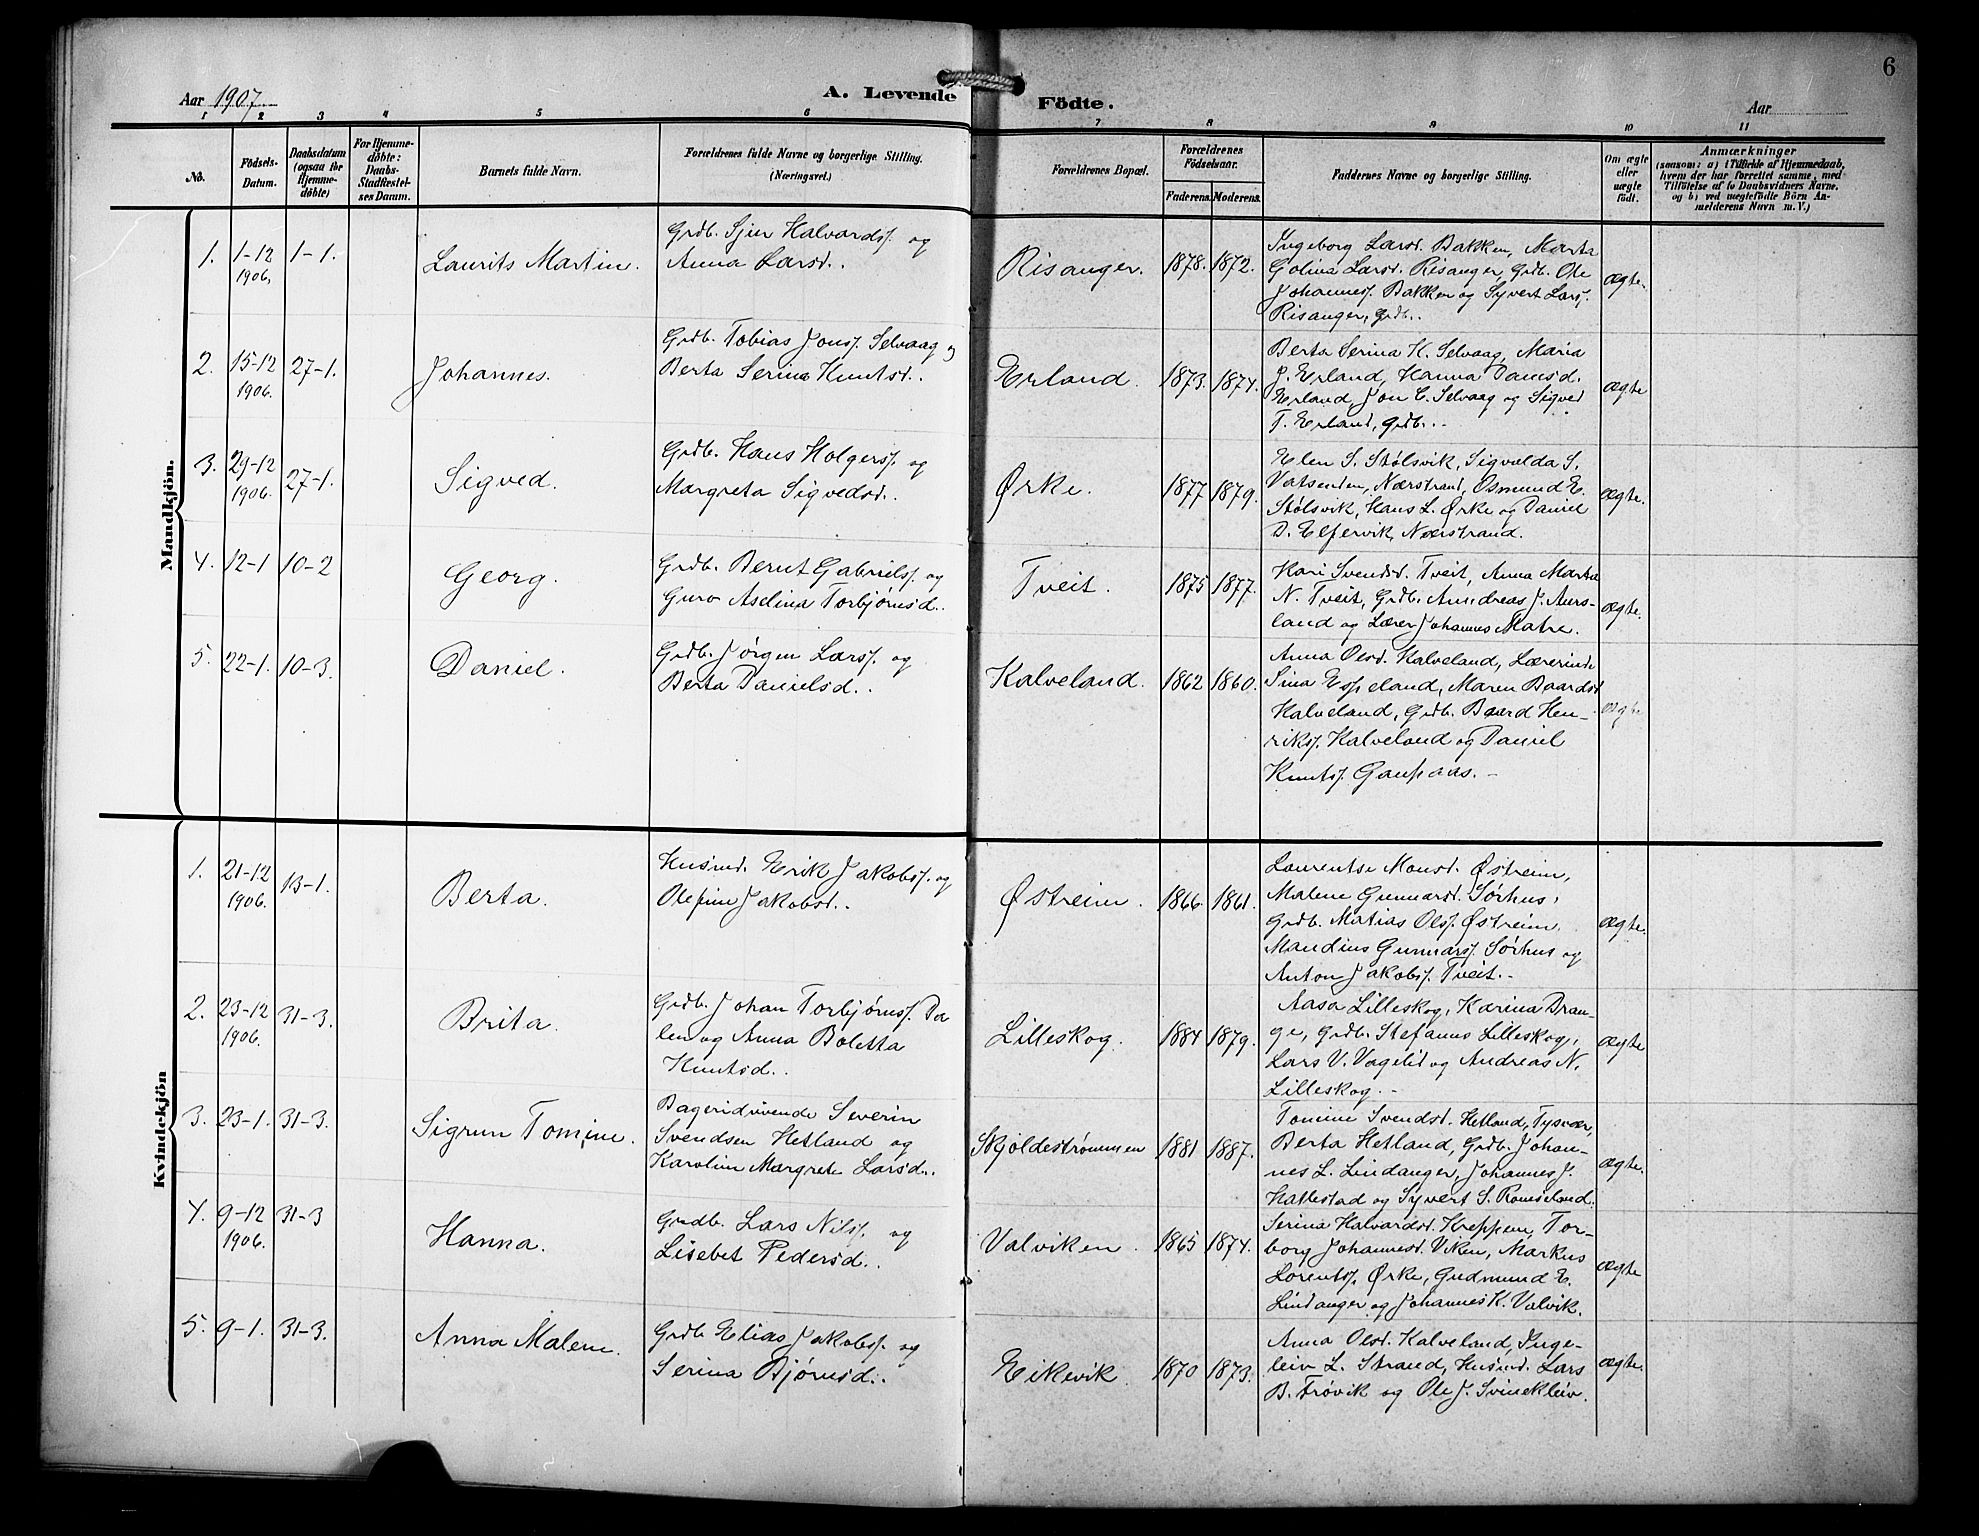 6
Aar 1907
A. Levende Födte.
Aar
1 2 3 4 5 6 7 8 9 10 11
No.
Födsels-
Datum.
Daabsdatum
(ogsaa for
Hjemme-
döbte)
For Hjemme-
döbte:
Daabs-
Stadfæstel-
ses Datum.
Barnets fulde Navn.
Forældrenes fulde Navne og borgerlige Stilling.
(Næringsvei.)
Forældrenes Bopæl.
Forældrenes
Födselsaar.
Faderens. Moderens.
Faddernes Navne og borgerlige Stilling.
Om ægte
eller
uægte
født.
Anmærkninger
(saasom: a) i Tilfælde af Hjemmedaab,
hvem der har forrettet samme, med
Tilföielse af to Daabsvidners Navne.
og b) ved uægtefödte Börn An-
melderens Navn m. V.)
Mandkjön.
1. 1-12 1906. 1-1. Laurits Martin.
Grdb. Sjur Halvards. og
Anna Larsd..
Risanger. 1878. 1872.
Ingeborg Larsd. Bakken, Marta
Golina Larsd. Risanger, Grdb. Ole
Johannes. Bakken og Syvert Lars.
Risanger, grdb..
ægte.
2. 15-12 1906. 27-1. Johannes.
Grdb. Tobias Jons. Selvaag og
Berta Serina Knutsd..
Erland. 1873. 1874.
Berta Serina K. Selvaag, Maria
J. Erland, Hanna Danisd.
Erland, Jon C. Selvaag og Sigved
T. Erland, grdb..-
ægte
3. 29-12 1906. 27-1. Sigved.
Grdb. Hans Holgers. og
Margreta Sigvedsd..
Ørke. 1877 1879.
Elen S. Stølsvik, Sigvalda S.
Vatsenden, Nærstrand, Osmund E.
Stølsvik, Hans L. Ørke og Daniel
D. Elfervik, Nærstrand.
ægte.
4. 12-1 10-2 Georg.
Grdb. Bernt Gabriels. og
Guro Aselina Torbjørnsd..
Tveit. 1875 1877.
Kari Svendsd. Tveit, Anna Marta
N. Tveit, Grdb. Andreas J. Aurs-
land og Lærer Johannes Matre.
ægte.
5. 22-1. 10-3. Daniel.
Grdb. Jørgen Lars. og
Berta Danielsd..
Kalveland. 1862 1860.
Anna Olsd. Kalveland, Lærerinde
Sina Espeland, Maren Baardsd
Kalveland, Grdb. Baard Hen-
riks. Kalveland og Daniel
Knuts. Gaupaas.-
ægte
Kvindekjön
1. 21-12 1906. 13-1. Berta.
Husmd. Erik Jakobs. og
Olefine Jakobsd..
Østreim. 1866 1861.
Laurentse Monsd. Østreim,
Malene Gunnarsd. Sørhus,
Grdb. Matias Ols. Østreim
Mandius Gunnars. Sørhus og
Anton Jakobs. Tveit.-
ægte.
2. 23-12 1906. 31-3. Brita.
Grdb. Johan Torbjørns. Da
len og Anna Boletta
Knutsd..
Lilleskog. 1884 1879.
Aasa Lilleskog, Karina Dran-
ge, Grdb. Stefanus Lilleskog,
Lars V. Vagelid og Andreas N.
Lilleskog.-
ægte
3. 23-1. 31-3. Sigrun Tomine.
Bageridrivende Severin
Svendsen Hetland og
Karoline Margrete Larsd..
Skjoldestrømmen 1881 1887.
Tomine Svendsd. Hetland, Tysvær,
Berta Hetland, Grdb. Johan-
nes L. Lindanger, Johannes J.
Hattestad og Syvert S. Romseland.
ægte.
4. 9-12 1906. 31-3 Hanna.
Grdb. Lars Nils. og
Lisebet Pedersd..
Valviken. 1865 1874.
Serina Halvardsd. Kreppen, Tor-
borg Johannesd. Viken, Markus
Lorents. Ørke, Gudmund E.
Lindanger og Johannes K. Valvik.
ægte
5. 9-1. 31-3. Anna Malene.
Grdb Elias Jakobs. og
Serina Bjørnsd..
Eikevik. 1870 1873.
Anna Olsd. Kalveland, Inge-
leiv L. Strand, Husmd. Lars
B. Frøvik og Ole J. Svinekleiv.
ægte.